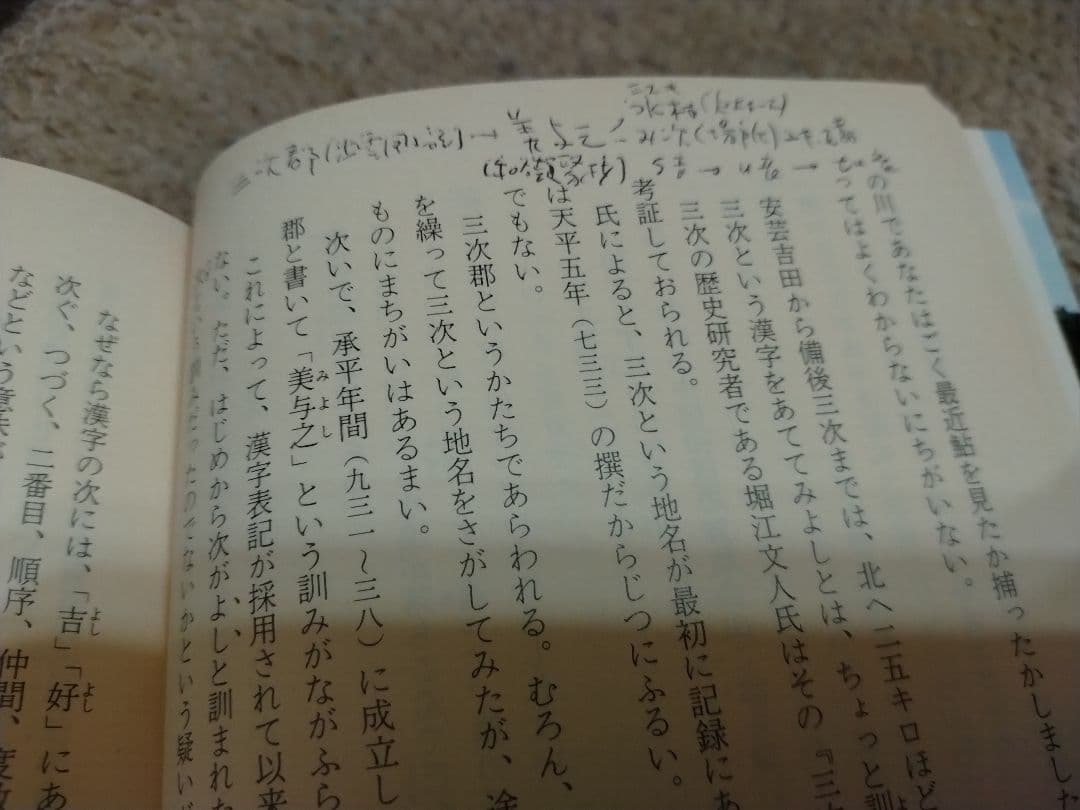 三次郡(出雲風土記)→ 美与之
(和名類聚抄)
の川であなたはごく最近鮎を見たか捕ったかしました
てってはよくわからないにちがいない。
安芸吉田から備後三次までは、北へ二五キロほど
三次という漢字をあててみよしとは、ちょっと訓
三次の歴史研究者である堀江文人氏はその『三次
考証しておられる。
氏によると、三次という地名が最初に記録にあ
は天平五年(七三三)の撰だからじつにふるい。
でもない。
三次郡というかたちであらわれる。むろん、
を繰って三次という地名をさがしてみたが、途
ものにまちがいはあるまい。
次いで、承平年間(九三一〜三八)に成立し
郡と書いて「美与之」という訓みがながふら
みよし
これによって、漢字表記が採用されて以来
ない。ただ、はじめから次がよしと訓まれた
たのでないかという疑い
なぜなら漢字の次には、「吉」「好」にあ
よし
よし
次ぐ、つづく、二番目、順序、仲間、度数
などという意味